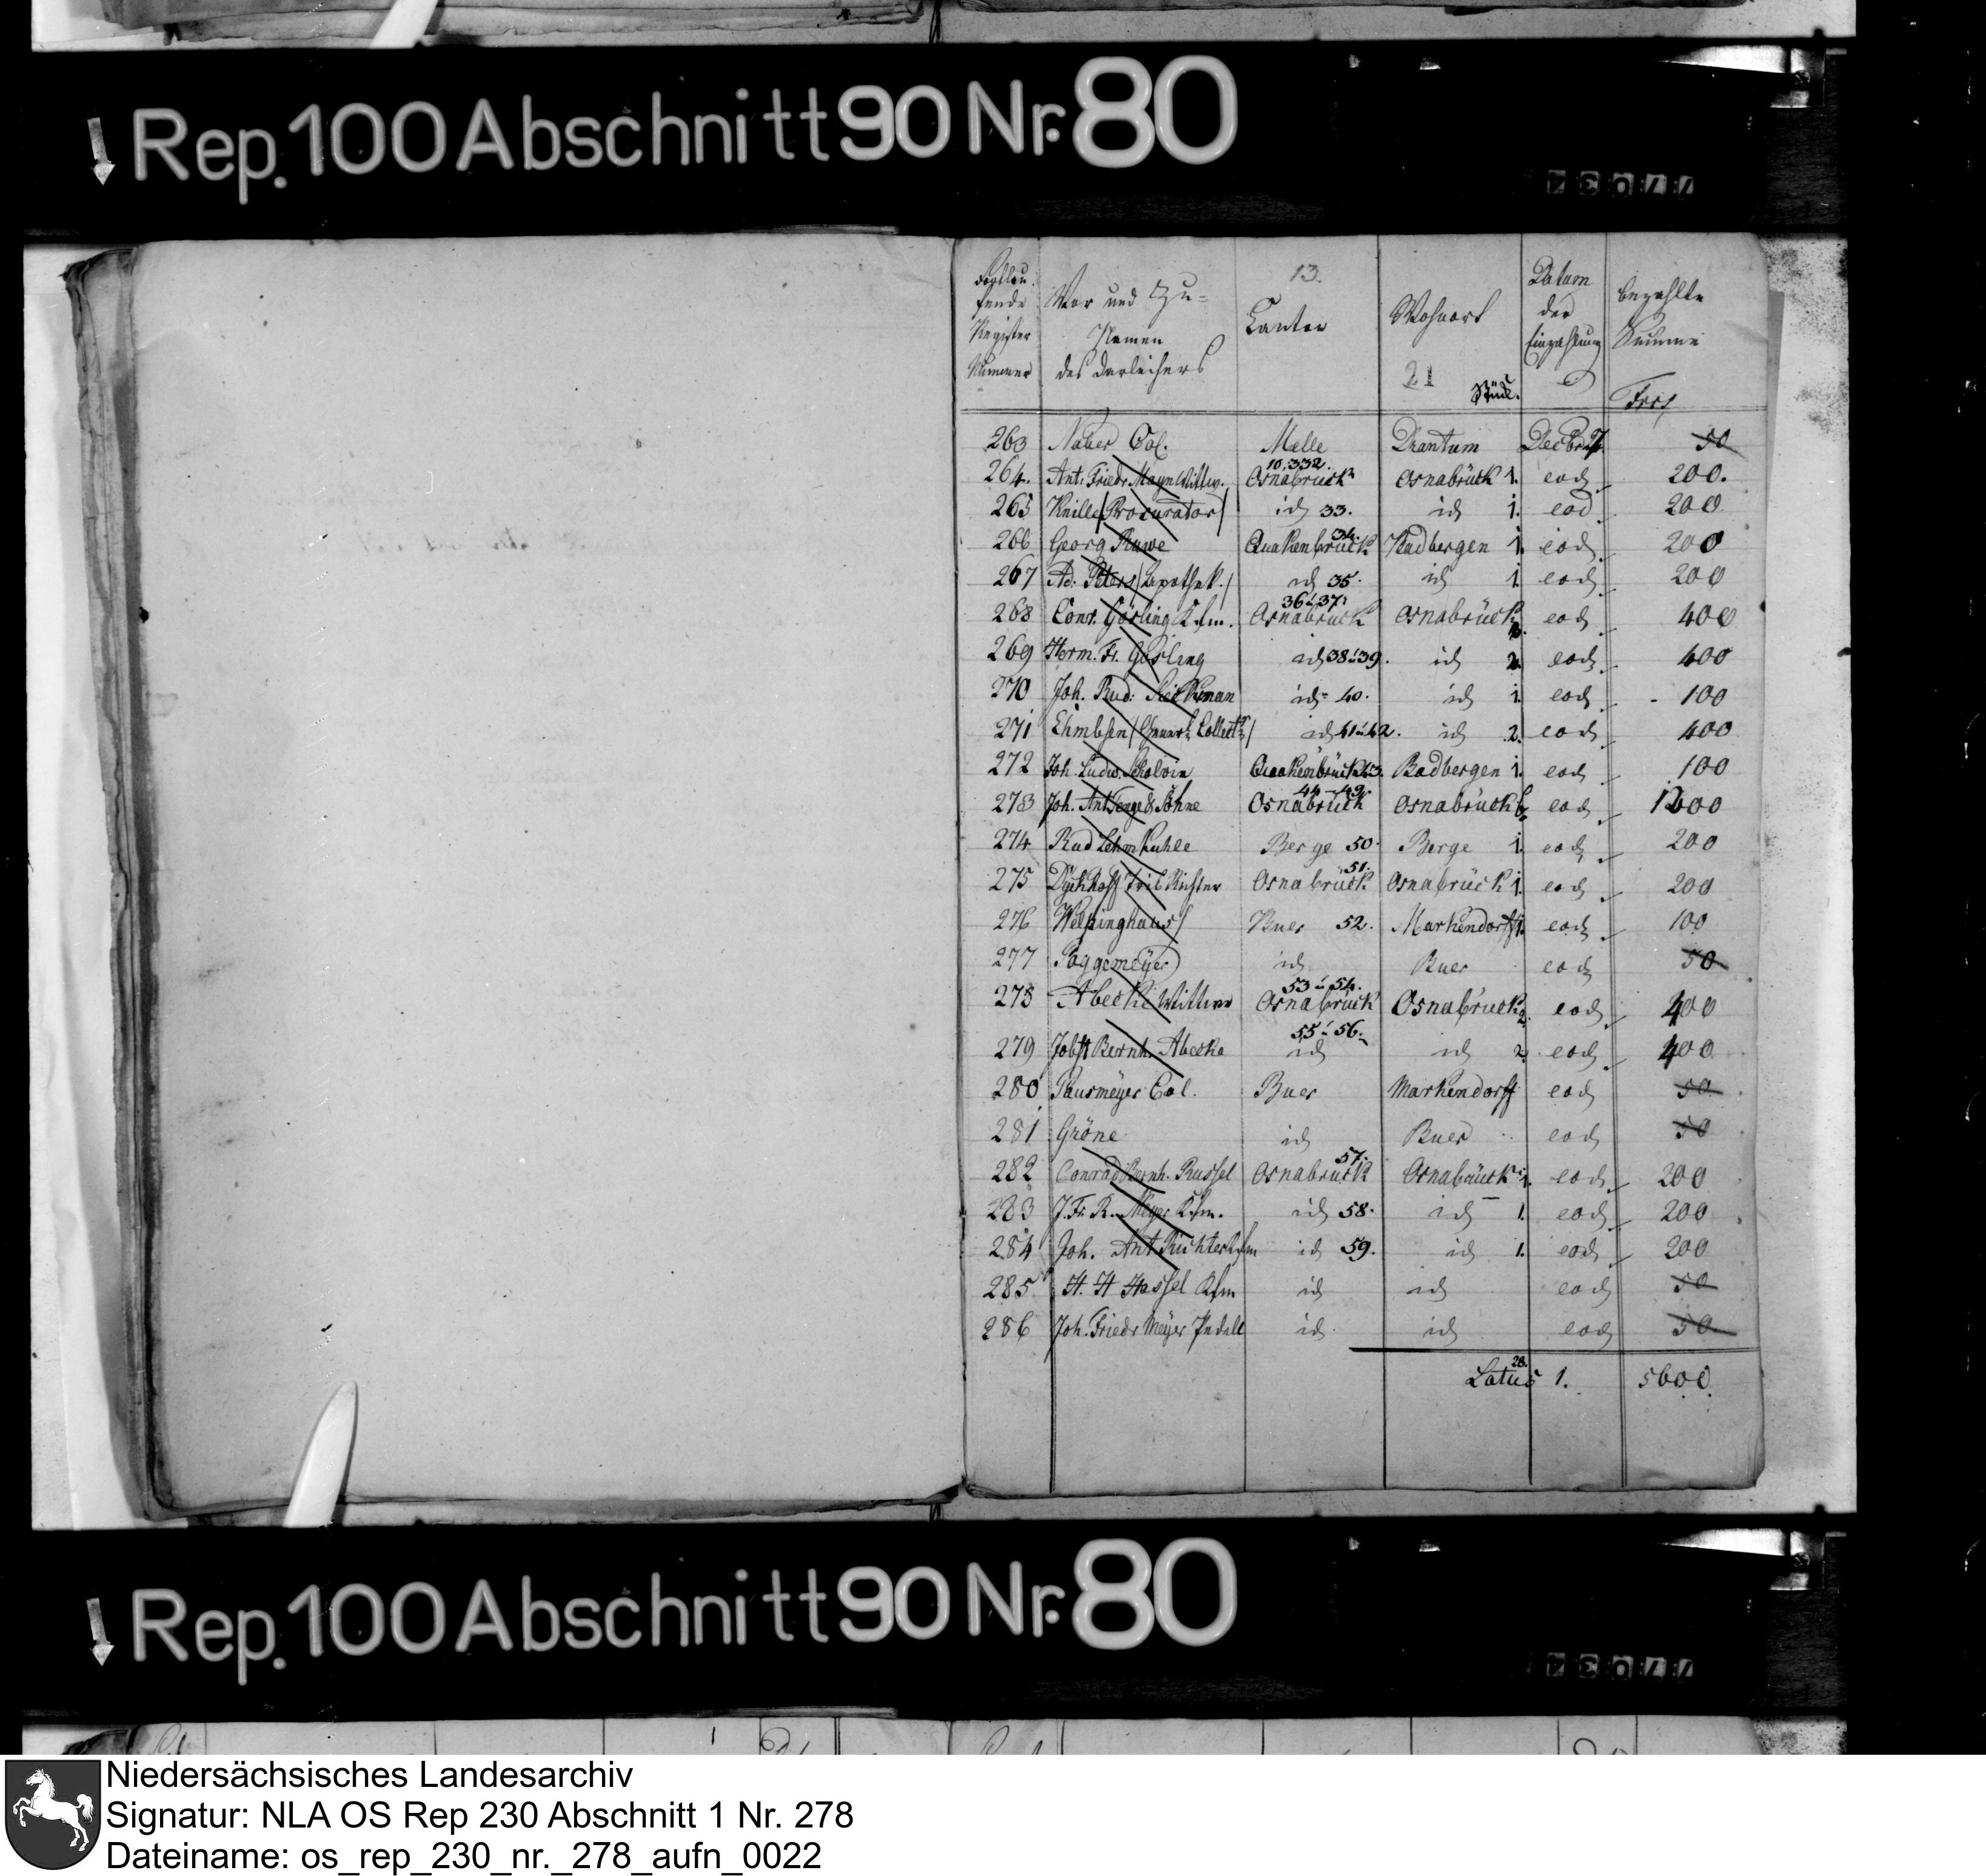 Rep. 100 Abschnitt 90 Nr. 80
Fortlau-
fende
Register
Nummer
Vor und Zu-
Namen
des Darleihers
13.
Canton
Wohnort
21 Stück.
Datum
der
Einzahlung
bezahlte
Summe
Frcs
263 Naber Col. Melle Drantum Decbr 7. 50
264. Ant: Friedr Mayn Wittw. 10,332. Osnabrück Osnabrück 1. eod 200.
265 Knille (Procurator) id 33. id 1. eod 200
266 Georg Ruwe Quakenbrück 34. Badbergen 1. eod 200
267 Ad: Peters (Apothek.) id 35. id 1. eod 200
268 Conr. Gosling Kfm. 36 u 37. Osnabrück Osnabrück 2. eod 400
269 Herm. Fr. Gosling id 38 u 39. id 2. eod 400
270 Joh. Rud: id 40. id 1. eod 100
271 Ehmbsen id 41 u 42. id 2. eod 400
272 Joh. Ludw. Quakenbrück 43. Badbergen 1. eod 100
273 Joh. Ant & Söhne 44 - 49. Osnabrück Osnabrück 6. eod 1200
274 Rud Lehmkuhle Berge 50. Berge 1. eod 200
275 Dyckhoff Trib Richter 51. Osnabrück Osnabrück 1. eod 200
276 Welpinghaus Buer 52. Markendorff 1. eod 100
277 Poggemeyer id Buer eod 50
278 Abeken Wittwe 53 u 54. Osnabrück Osnabrück 2. eod 400
279 Jobst Bernh. Abeken 55 u 56. id id 2. eod 400
280 Pausmeyer Col. Buer Markendorff eod 50
281 Gröne id Buer eod 50
282 Conrad Bernh. Russel 57. Osnabrück Osnabrück 1. eod 200
283 J. Fr. R. Meyer Kfm. id 58. id 1. eod 200
284 Joh. Ant Richter Kfm id 59. id 1. eod 200
285 H. H Hassel Kfm id id eod 50
286 Joh. Friedr Meyer Pedell id id eod 50
28.
Latus 1. 5600.
Rep. 100 Abschnitt 90 Nr. 80
Niedersächsisches Landesarchiv
Signatur: NLA OS Rep 230 Abschnitt 1 Nr. 278
Dateiname: os_rep_230_nr._278_aufn_0022